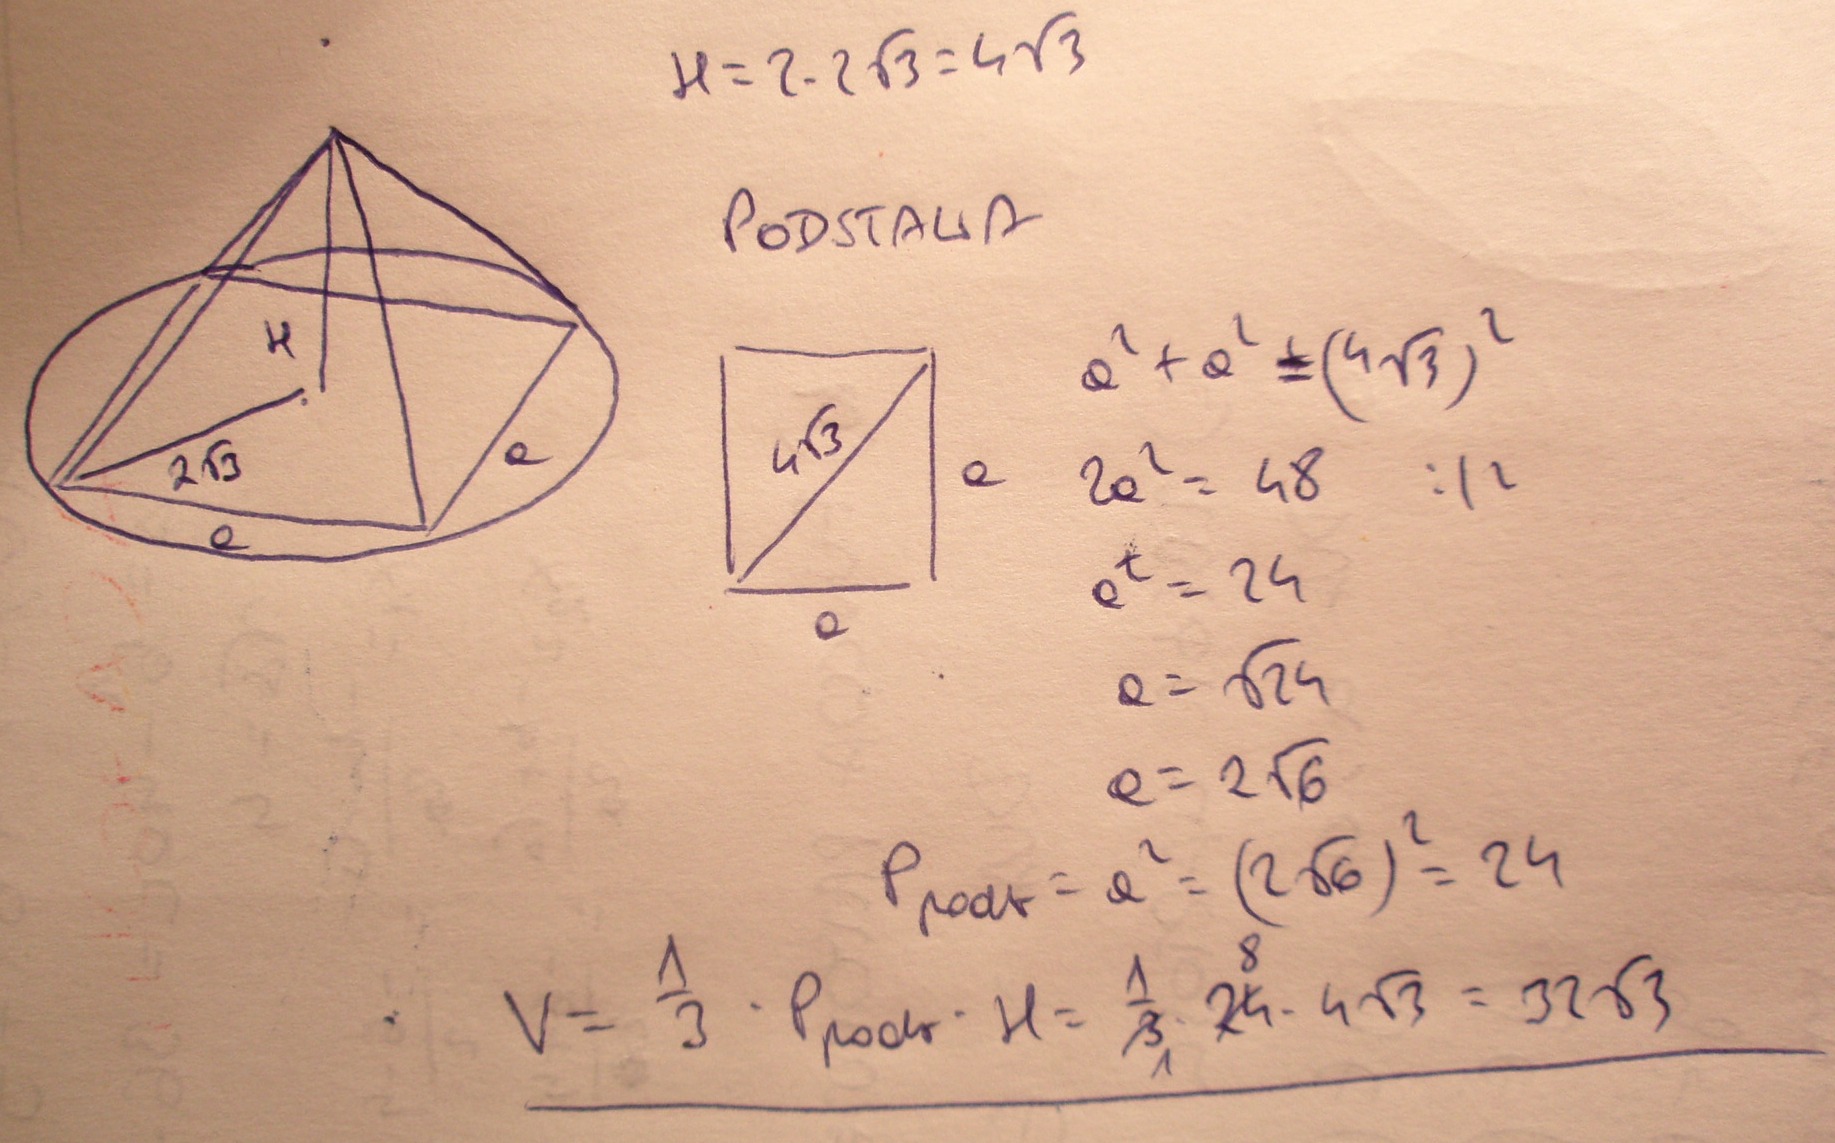 H = 2 · 2√3 = 4√3
PODSTAWA
H
2√3
a
a
4√3
a
a
a² + a² = (4√3)²
2a² = 48 :/2
a² = 24
a = √24
a = 2√6
P podst = a² = (2√6)² = 24
V = 1/3 · P podst · H = 1/3 · 24 · 4√3 = 32√3
8
1